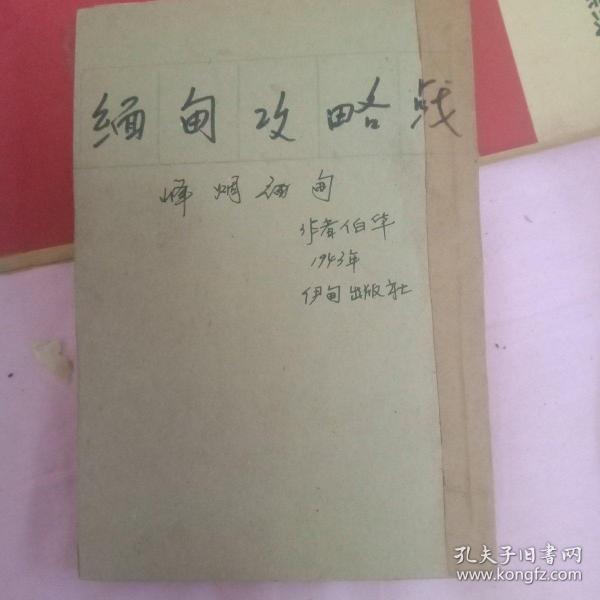 缅甸攻略战
烽烟缅甸
作者伯华
1943年
伊甸出版社
孔夫子旧书网
www.kongfz.com